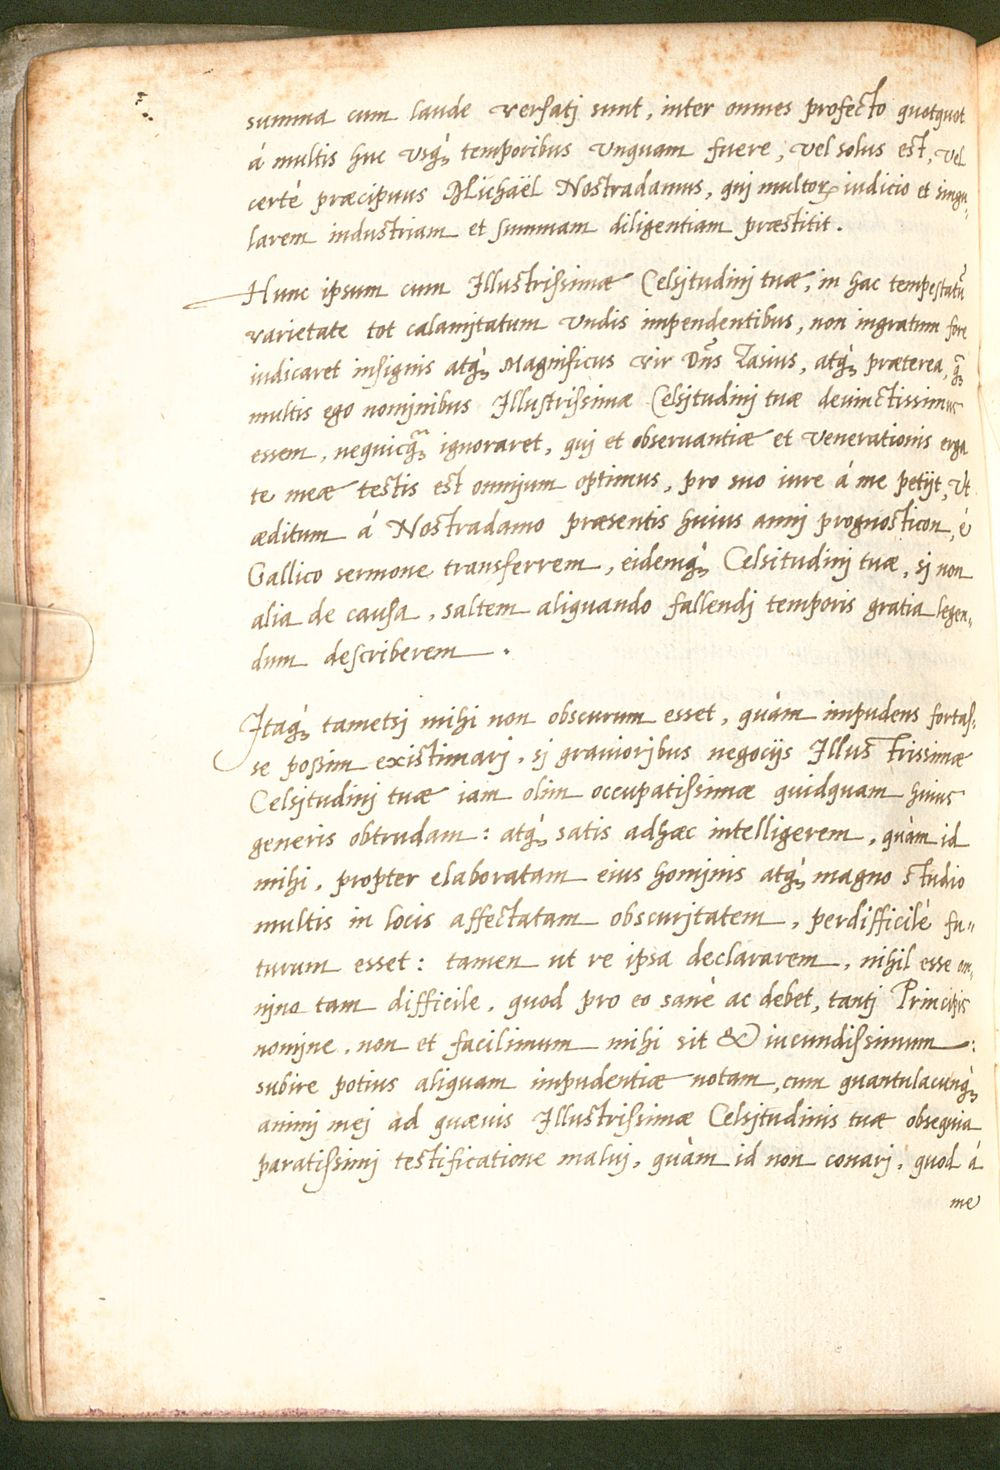 summa cum laude versatj sunt, inter onmes profecto quotquot
á multis huc vsq́; temporibus vnquam fuere, vel solus est, vel
certé præcipuus Michaël Nostradamus, quj multoꝝ iudicio et singu,
larem industriam et summam diligentiam præstitit.
Hunc ipsum cum Illustrissimæ Celsjtudinj tuæ, in hac tempestatū
varietate tot calamjtatum vndis impendentibus, non ingratum fore
iudicaret insignis atq́; Magnificus vir Dn̄s Zasius, atq́; præterea, q̄;
multis ego nomjnibus Illustrissimæ Celsjtudinj tuæ deuinctissimus
essem, nequicq̄; ignoraret, quj et obseruantiæ et venerationis erga
te meæ testis est omnjum optimus, pro suo iure á me petijt, vt
æditum á Nostradamo præsentis huius annj prognosticon, é
Gallico sermone transferrem, eidemq́; Celsitudinj tuæ, sj non
alia de causa, saltem aliquando fallendj temporis gratia legen„
dum describerem.
Itaq́; tametsj mihi non obscurum esset, quàm impudens fortas,
se poßim existimarj, sj grauioribus negocijs Illustrissimæ
Celsjtudinj tuæ iam olim occupatissimæ quidquam huius
generis obtrudam: atq́; satis adhæc intelligerem, quàm id
mihi, propter elaboratam eius homjnis atq́; magno studio
multis in locis affectatam obscurjtatem, perdifficilé fu„
turum esset: tamen ut re ipsa declararem, nihil esse om,
njno tam difficile, quod pro eo sané ac debet, tantj Principis
nomjne, non et facilimum mihi sit & iucundissimum:
subire potius aliquam impudentiæ notam, cum quantulacunq́;
animj mej ad quæuis Illustrissimæ Celsjtudinis tuæ obsequia
paratissimj testificatione maluj, quàm id non conarj, quod á
me